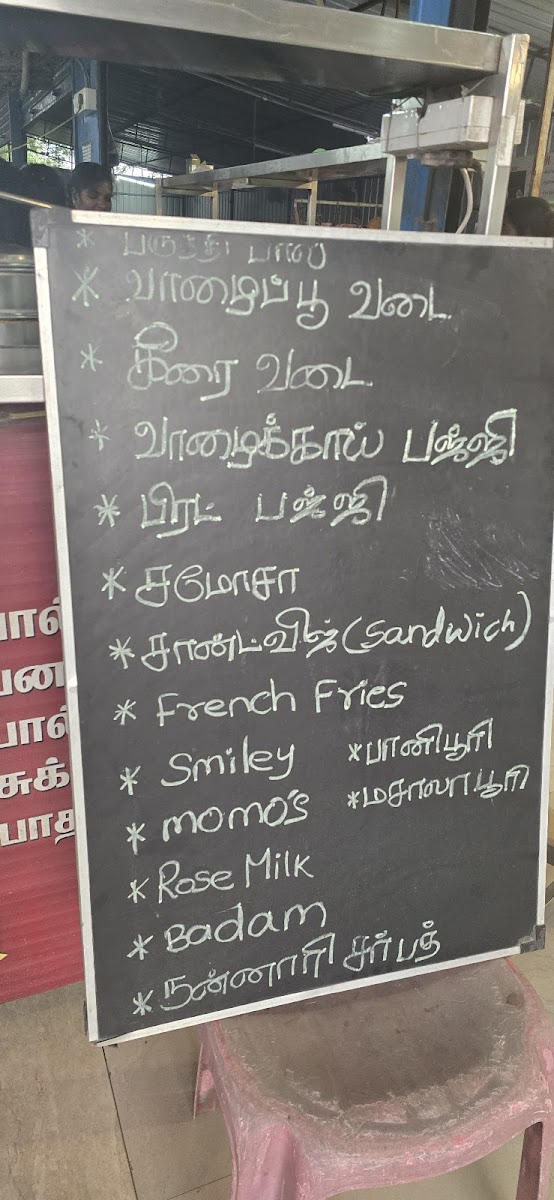 * பருத்தி பால்
* வாழைப்பூ வடை
* கீரை வடை
* வாழைக்காய் பஜ்ஜி
* பிரட் பஜ்ஜி
* சமோசா
* சாண்ட்விஜ் (Sandwich)
* French Fries
* Smiley * பானிபூரி
* momo's * மசாலாபூரி
* Rose Milk
* Badam
* நன்னாரி சர்பத்
பால்